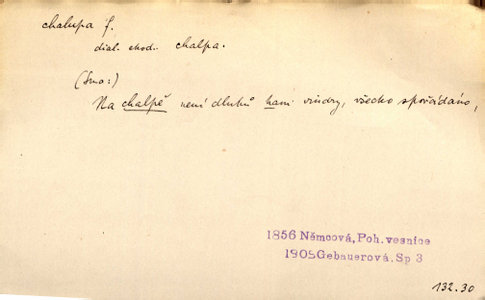 chalupa f.
dial. chod. chalpa.
Na chalpě není dluhů hani vindry, všecko spořádáno,
1856 Němcová, Poh. vesnice
1905 Gebauerová. Sp 3
132.30